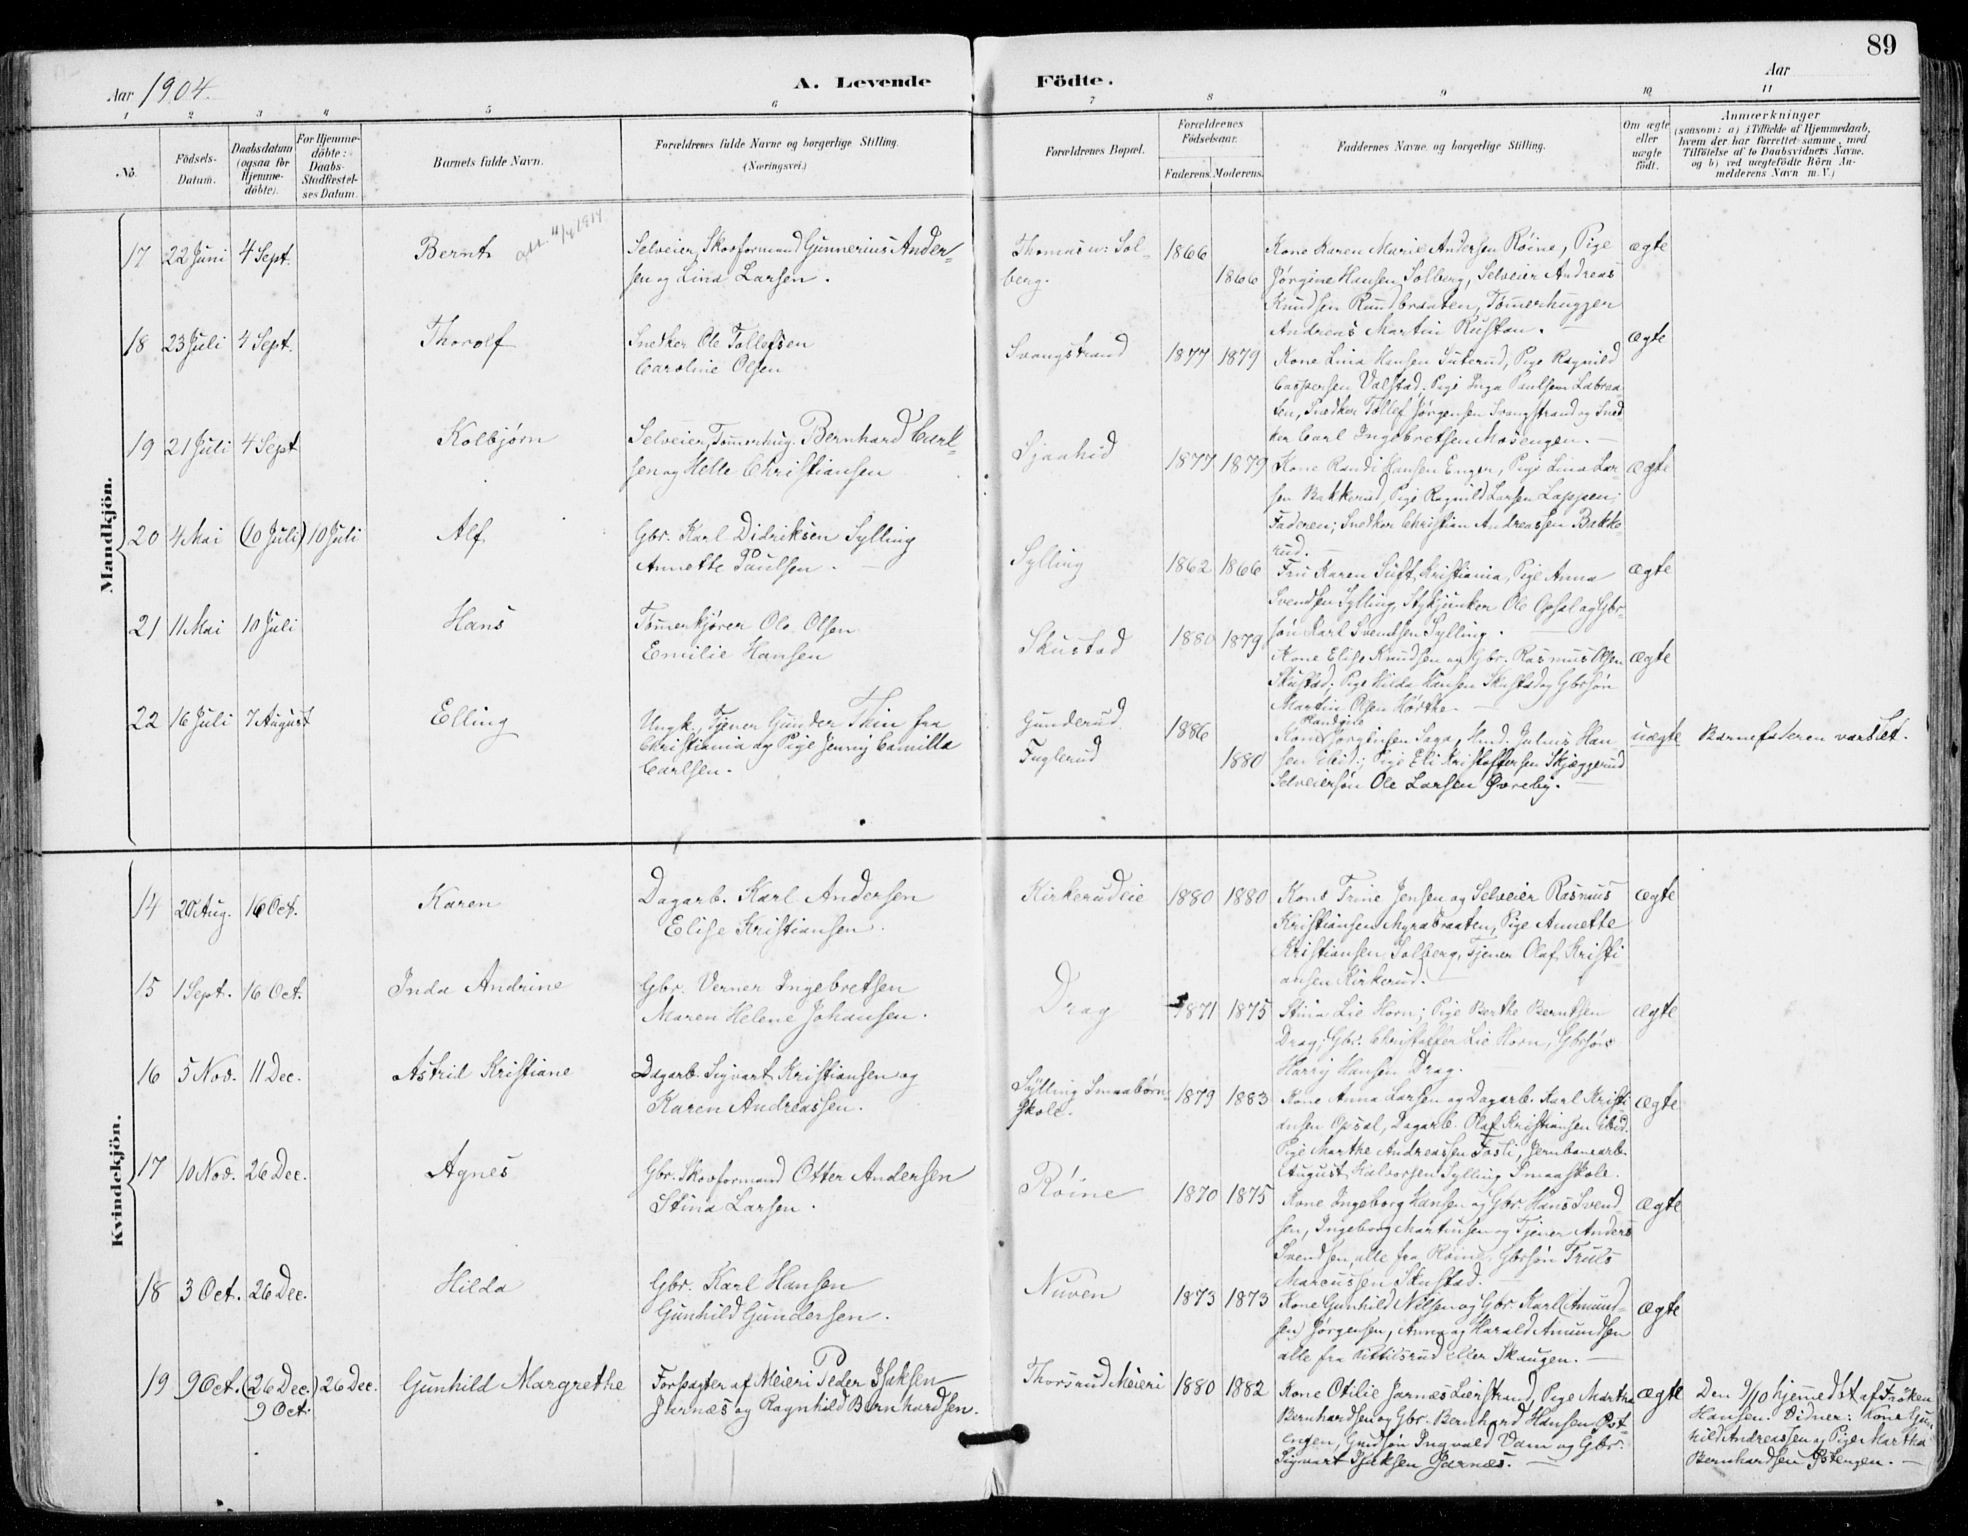 89
Aar 1904.
A. Levende Födte.
Aar
1 2 3 4 5 6 7 8 9 10 11
No.
Födsels-
Datum.
Daabsdatum
(ogsaa for
Hjemme-
döbte).
For Hjemme-
döbte:
Daabs-
Stadfæstel-
ses Datum.
Barnets fulde Navn.
Forældrenes fulde Navne og borgerlige Stilling.
(Næringsvei.)
Forældrenes Bopæl.
Forældrenes
Födselsaar.
Faderens. Moderens.
Faddernes Navne og borgerlige Stilling.
Om ægte
eller
uægte
födt.
Anmærkninger
(saasom: a) i Tilfælde af Hjemmedaab,
hvem der har forrettet samme, med
Tilföielse af to Daabsvidners Navne,
og b) ved uægtefödte Börn An-
melderens Navn m. V.)
Mandkjön.
17 22 Juni 4 Sept. Bernt
Selveier, Skovformand Gunnerius Ander-
sen og Lina Larsen.
Sol-
berg.
1866 1866
Kone Karen Marie Andersen Röine, Pige
Jørgine Hansen Solberg, Selveier Andreas
Knudsen Rundbraaten, Tømerhugger
Andreas Martin Rustan.
ægte
18 23 Juli 4 Sept. Thorolf
Snedker Ole Tollefsen
Caroline Olsen
Svangstrand
1877 1879
Kone Lina Hansen Suterud, Pige Ragnild
Caspersen Valstad, Pige Inga Paulsen Labraa-
ten, Snedker Tollef Jørgensen Svangstrand og Sned
ker Carl Ingebretsen Mosengen.
ægte
19 21 Juli 4 Sept Kolbjørn
Selveier, Tømerhug. Bernhard Carl-
sen og Helle Christiansen
1877 1879
Kone Randi Hansen Enger, Pige Lina Lar
sen Bakkerud, Pige Ragnild Larsen Lappen,
Faderen; Snedker Christian Andreassen Bakke
rud.
ægte
20 4 Mai (10 Juli) 10 Juli Alf
Gbr. Karl Didriksen Sylling
Annette Paulsen.
Sylling
1862 1866
Fru Karen Kristiania, Pige Anna
Svendsen Sylling, Ole Opsal og Gbr-
søn Karl Svendsen Sylling.
ægte
21 11 Mai 10 Juli Hans
Tømerkjører Ole Olsen
Emilie Hansen
Skustad
1880 1879
Kone Elise Knudsen og Gbr. Rasmus Olsen
Skustad, Pige Hilda Hansen Skustad og Gbrsøn
Martin Olsen Hørthe.
ægte
22 16 Juli 7 August Elling
Ungk., Tjener Gunder Thin fra
Christiania og Pige Jenny Camilla
Carlsen.
Gunderud
Fuglerud
1886 1880
Kone Jørgensen Saga, Julius Han
sen ibid.; Pige Eli Kristoffersen Skjæggerud
Selveiersøn Ole Larsen Øvreby.
uægte
Barnefaderen varslet.
Kvindekjön.
14 20 Aug. 16 Oct. Karen
Dagarb. Karl Andersen
Elise Kristiansen.
Kirkerudeie
1880 1880
Kone Trine Jensen og Selveier Rasmus
Kristiansen Myrabraaten, Pige Annette
Kristiansen Solberg, Tjener Olaf Kristi-
ansen Kirkerud.
ægte
15 1 Sept. 16 Oct. Inda Andrine
Gbr. Verner Ingebretsen
Maren Helene Johansen.
Drag
1871 1875
Stina Lie Horn; Pige Berthe Berntsen
Drag; Gbr. Christoffer Lie Horn, Gbrsøn
Harry Hansen Drag.
ægte
16 5 Nov. 11 Dec. Astrid Kristiane
Dagarb. Sigvart Kristiansen og
Karen Andreassen.
Sylling Smaabørn-
skole.
1879 1883
Kone Anna Larsen og Dagarb. Karl Kristi
ansen Opsal, Dagarb. Olaf Kristiansen ibid.
Pige Marthe Andreassen Fosli, Jernbanearb.
August Halvorsen Sylling Smaaskole.
ægte
17 10 Nov. 26 Dec. Agnes
Gbr. Skovformand Otter Andersen
Stina Larsen.
Röine
1870 1875
Kone Ingeborg Hansen og Gbr. Hans Svend
sen, Ingeborg Martinsen og Tjener Anders
Svendsen, alle fra Röine. Gbrsøn Truls
Marcussen Skustad.
ægte
18 3 Oct. 26 Dec. Hilda
Gbr. Karl Hansen
Gunhild Gundersen.
Nuven
1873 1873
Kone Gunhild Nilsen og Gbr. Karl (Amund-
sen) Jørgensen, Anna og Harald Amundsen
alle fra eller Skaugen.
ægte
19 9 Oct. (26 Dec.) 26 Dec. Gunhild Margrethe
9 Oct.
Forpagter af Meieri Peder Isaksen
Jarnæs og Ragnhild Bernhardsen.
Thorsrud Meieri
1880 1882
Kone Otilie Jarnæs Lierstrand, Pige Martha
Bernhardsen og Gbr. Bernhard Hansen Øst-
engen, Ingvald Dam og Gbr.
Sigvart Isaksen Jarnæs.
ægte
Den 9/10 hjemedøbt af Frøken
Hansen. Vidner: Kone Gun
hild Andreassen og Pige Martha
Bernhardsen Østengen.